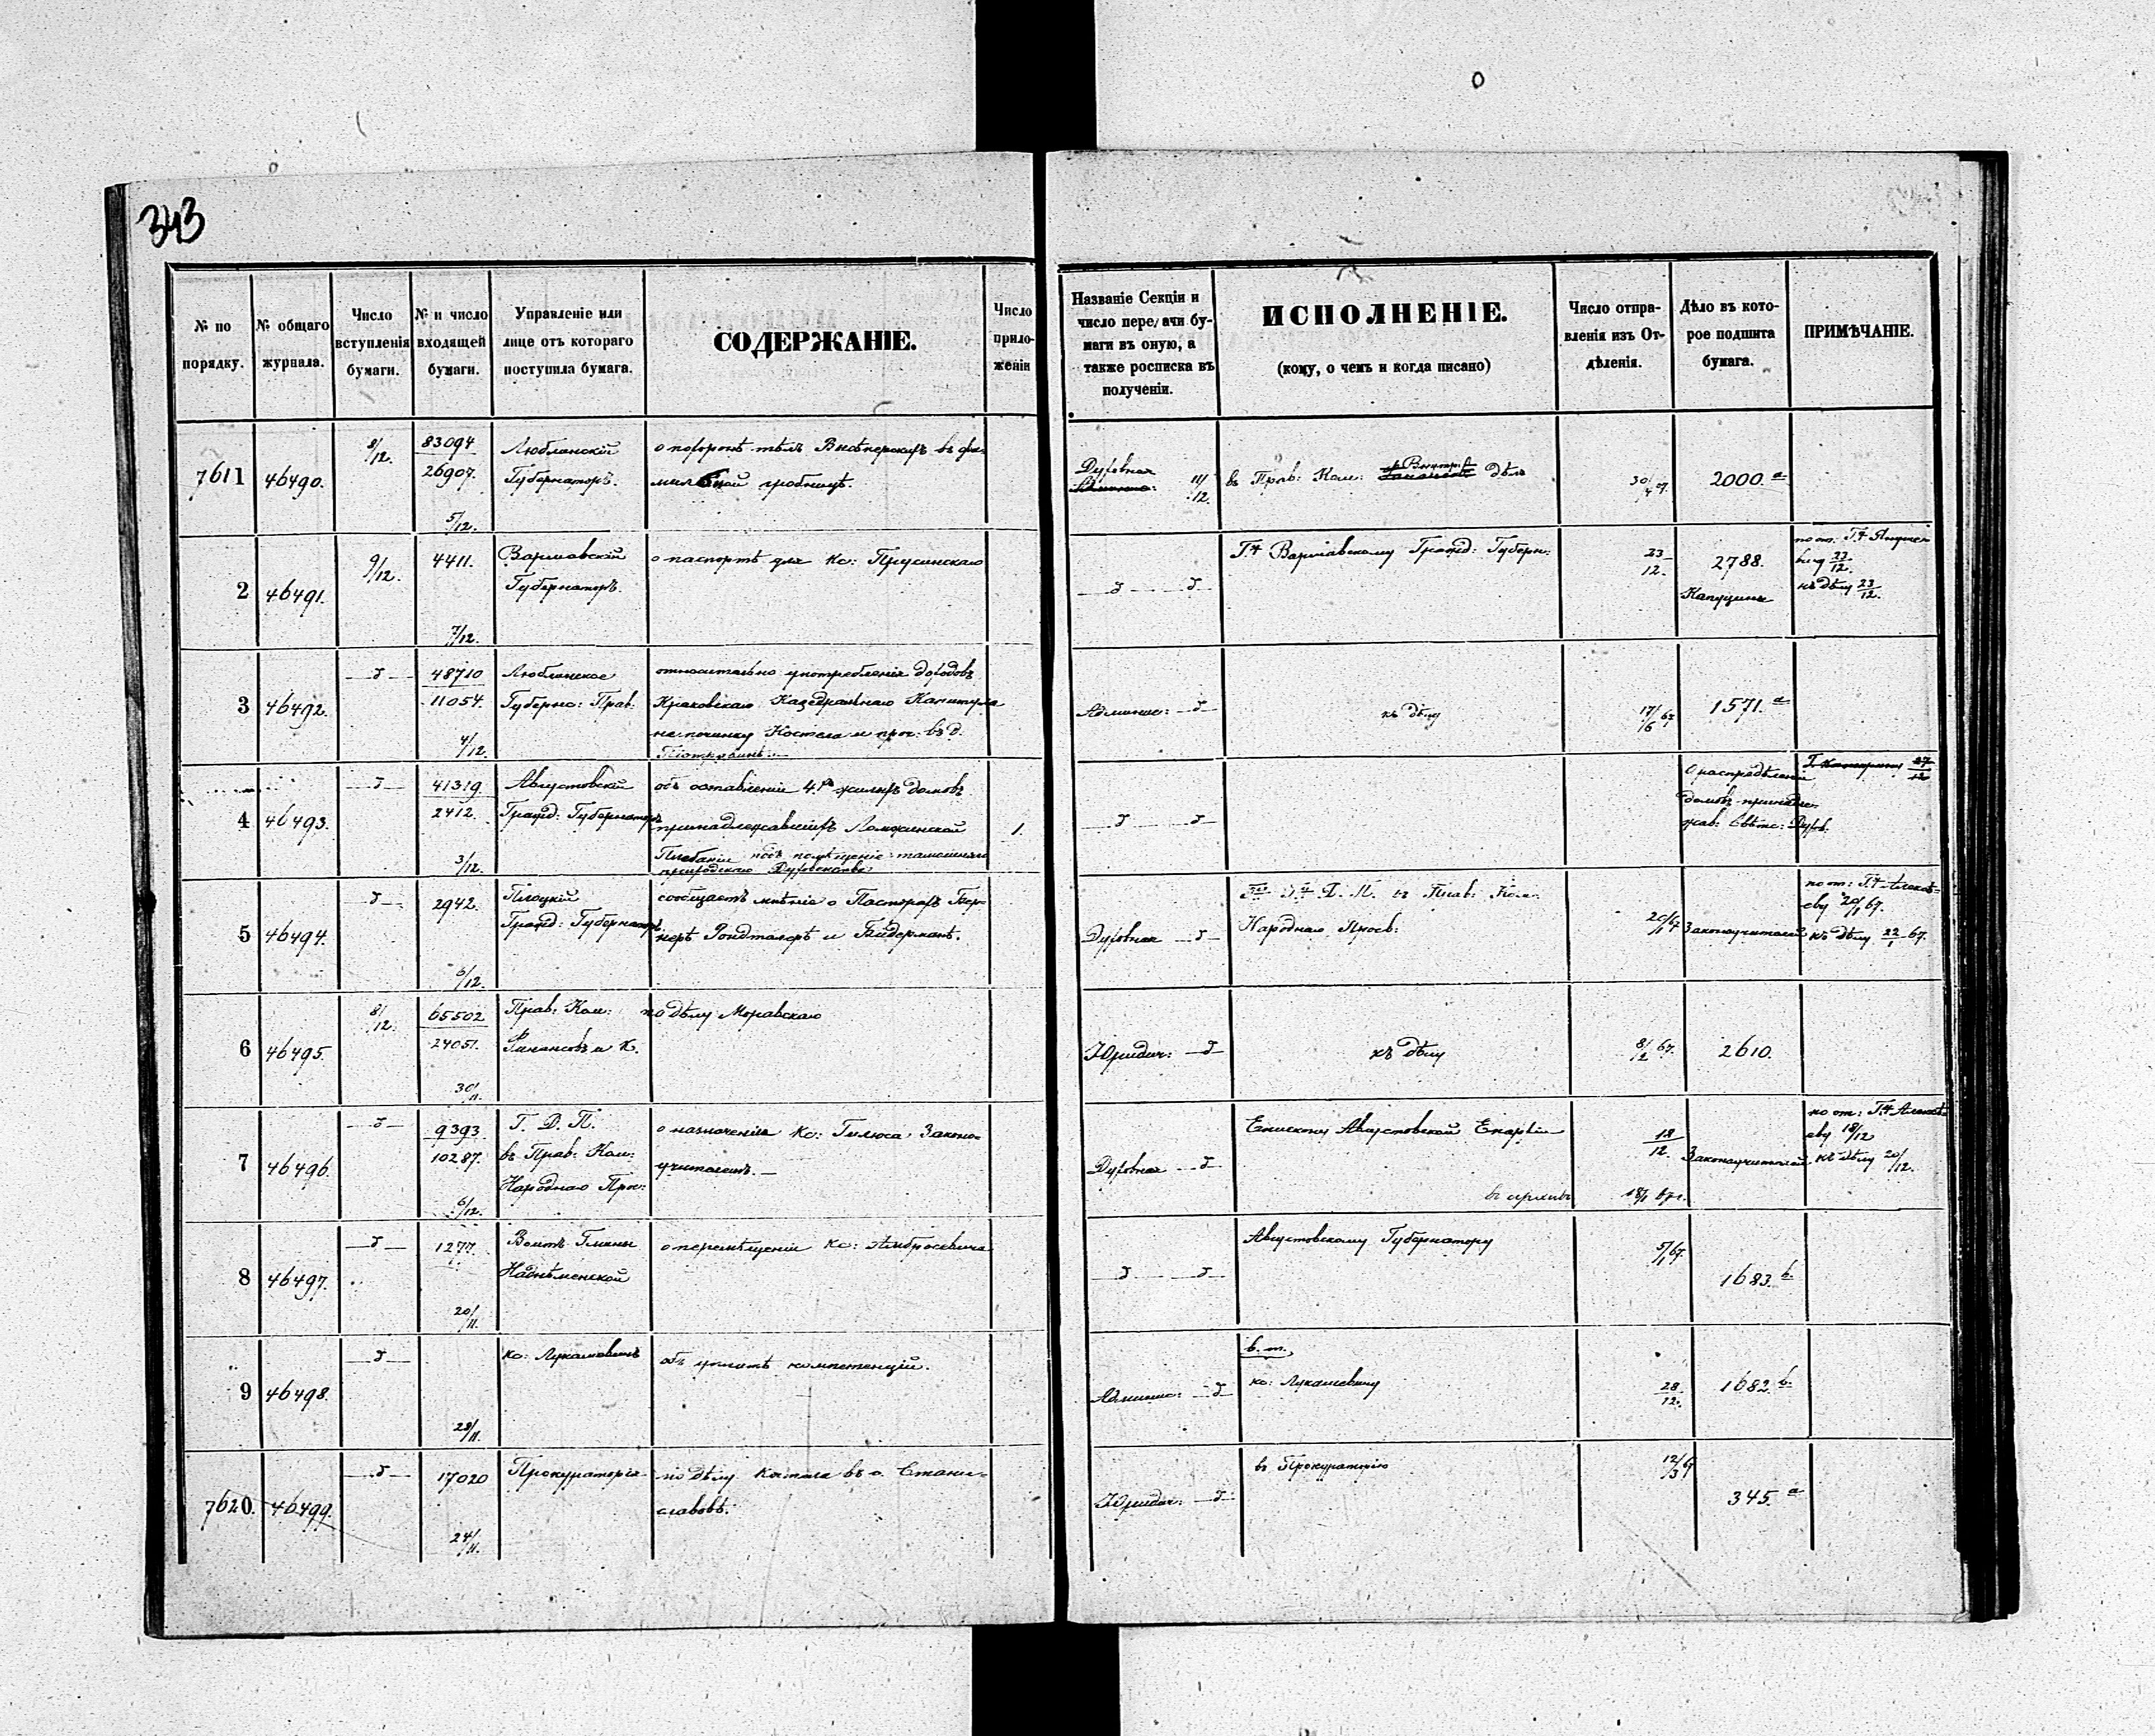 343
№ по порядку.
№ общаго журнала.
Число вступленія бумаги.
№ и число входящей бумаги.
Управленіе или лице отъ котораго поступила бумага.
СОДЕРЖАНІЕ.
Число приложеній
Названіе Секціи и число передачи бумаги въ оную, а также росписка въ полученіи.
ИСПОЛНЕНІЕ.
(кому, о чемъ и когда писано)
Число отправленія изъ Отдѣленія.
Дѣло въ которое подшита бумага.
ПРИМѢЧАНІЕ.
7611 46490. 8/12. 83094
26907.
5/12.
Люблинскій
Губернаторъ.
о похоронѣ тѣлъ въ фа-
мильной гробницѣ.
Духовная 11/12.
въ Прав: Ком: дѣлъ
2000 а
2 46491. 9/12. 4411.
7/12.
Варшавскій
Губернаторъ.
о паспортѣ для Кс: Прусинскаго
Г-ну Варшавскому Гражд: Губерн:
23/12.
2788.
Капуцины
къ дѣлу 23/12.
3 46492. 48710
11054.
4/12.
Люблинское
Губернс: Прав.
относительно употребленія доходовъ
Краковскаго Каѳедральнаго Капитула
на починку Костела и проч: въ д.
Админис:
къ дѣлу
17/6 67
1571. а
4 46493. 41319.
2412.
3/12.
Августовскій
Гражд: Губернаторъ
объ оставленіи 4-хъ жилыхъ домовъ
принадлежавшихъ Ломжинской
Плебаніи подъ помѣщеніе тамошняго
приходскаго Духовенства.
1.
О распредѣленіи
домовъ принадле-
жав: Свѣтс: Духов.
5 46494. 2942.
6/12.
Плоцкій
Гражд: Губернаторъ
сообщаетъ мнѣніе о Пасторахъ Бер-
Духовная
Д. П. въ Прав: Ком:
Народнаго Просв:
20/1 67
Законоучителей
къ дѣлу 22/1 67.
6 46495. 8/12. 65502
24051.
30/11.
Прав: Ком:
Финансовъ и К.
по дѣлу Моравскаго
Юридич:
къ дѣлу
8/2 67.
2610.
7 46496. 9393
10287.
6/12.
Г. Д. П.
въ Прав: Ком:
Народнаго Прос:
о назначеніи Кс: Гилюса Законо-
учителемъ.
Духовная
Епископу Августовской Епархіи
18/12.
въ архивъ
Законоучителей
къ дѣлу 20/12.
8 46497. 1277.
20/11.
Войтъ Гмины
Наднѣменской
о перемѣщеніи Кс: Амбросевича
Августовскому Губернатору
5/1 67.
1683. b
9 46498.
28/11.
кс: Лукашевичъ
объ уплатѣ компетенціи.
Админис:
в. т.
кс: Лукашевичу
28/12.
1682. b.
7620. 46499. 17020
24/11.
Прокураторія
по дѣлу Костела въ с. Станис-
лавовѣ.
Юридич:
въ Прокураторію
12/3 67
345. а